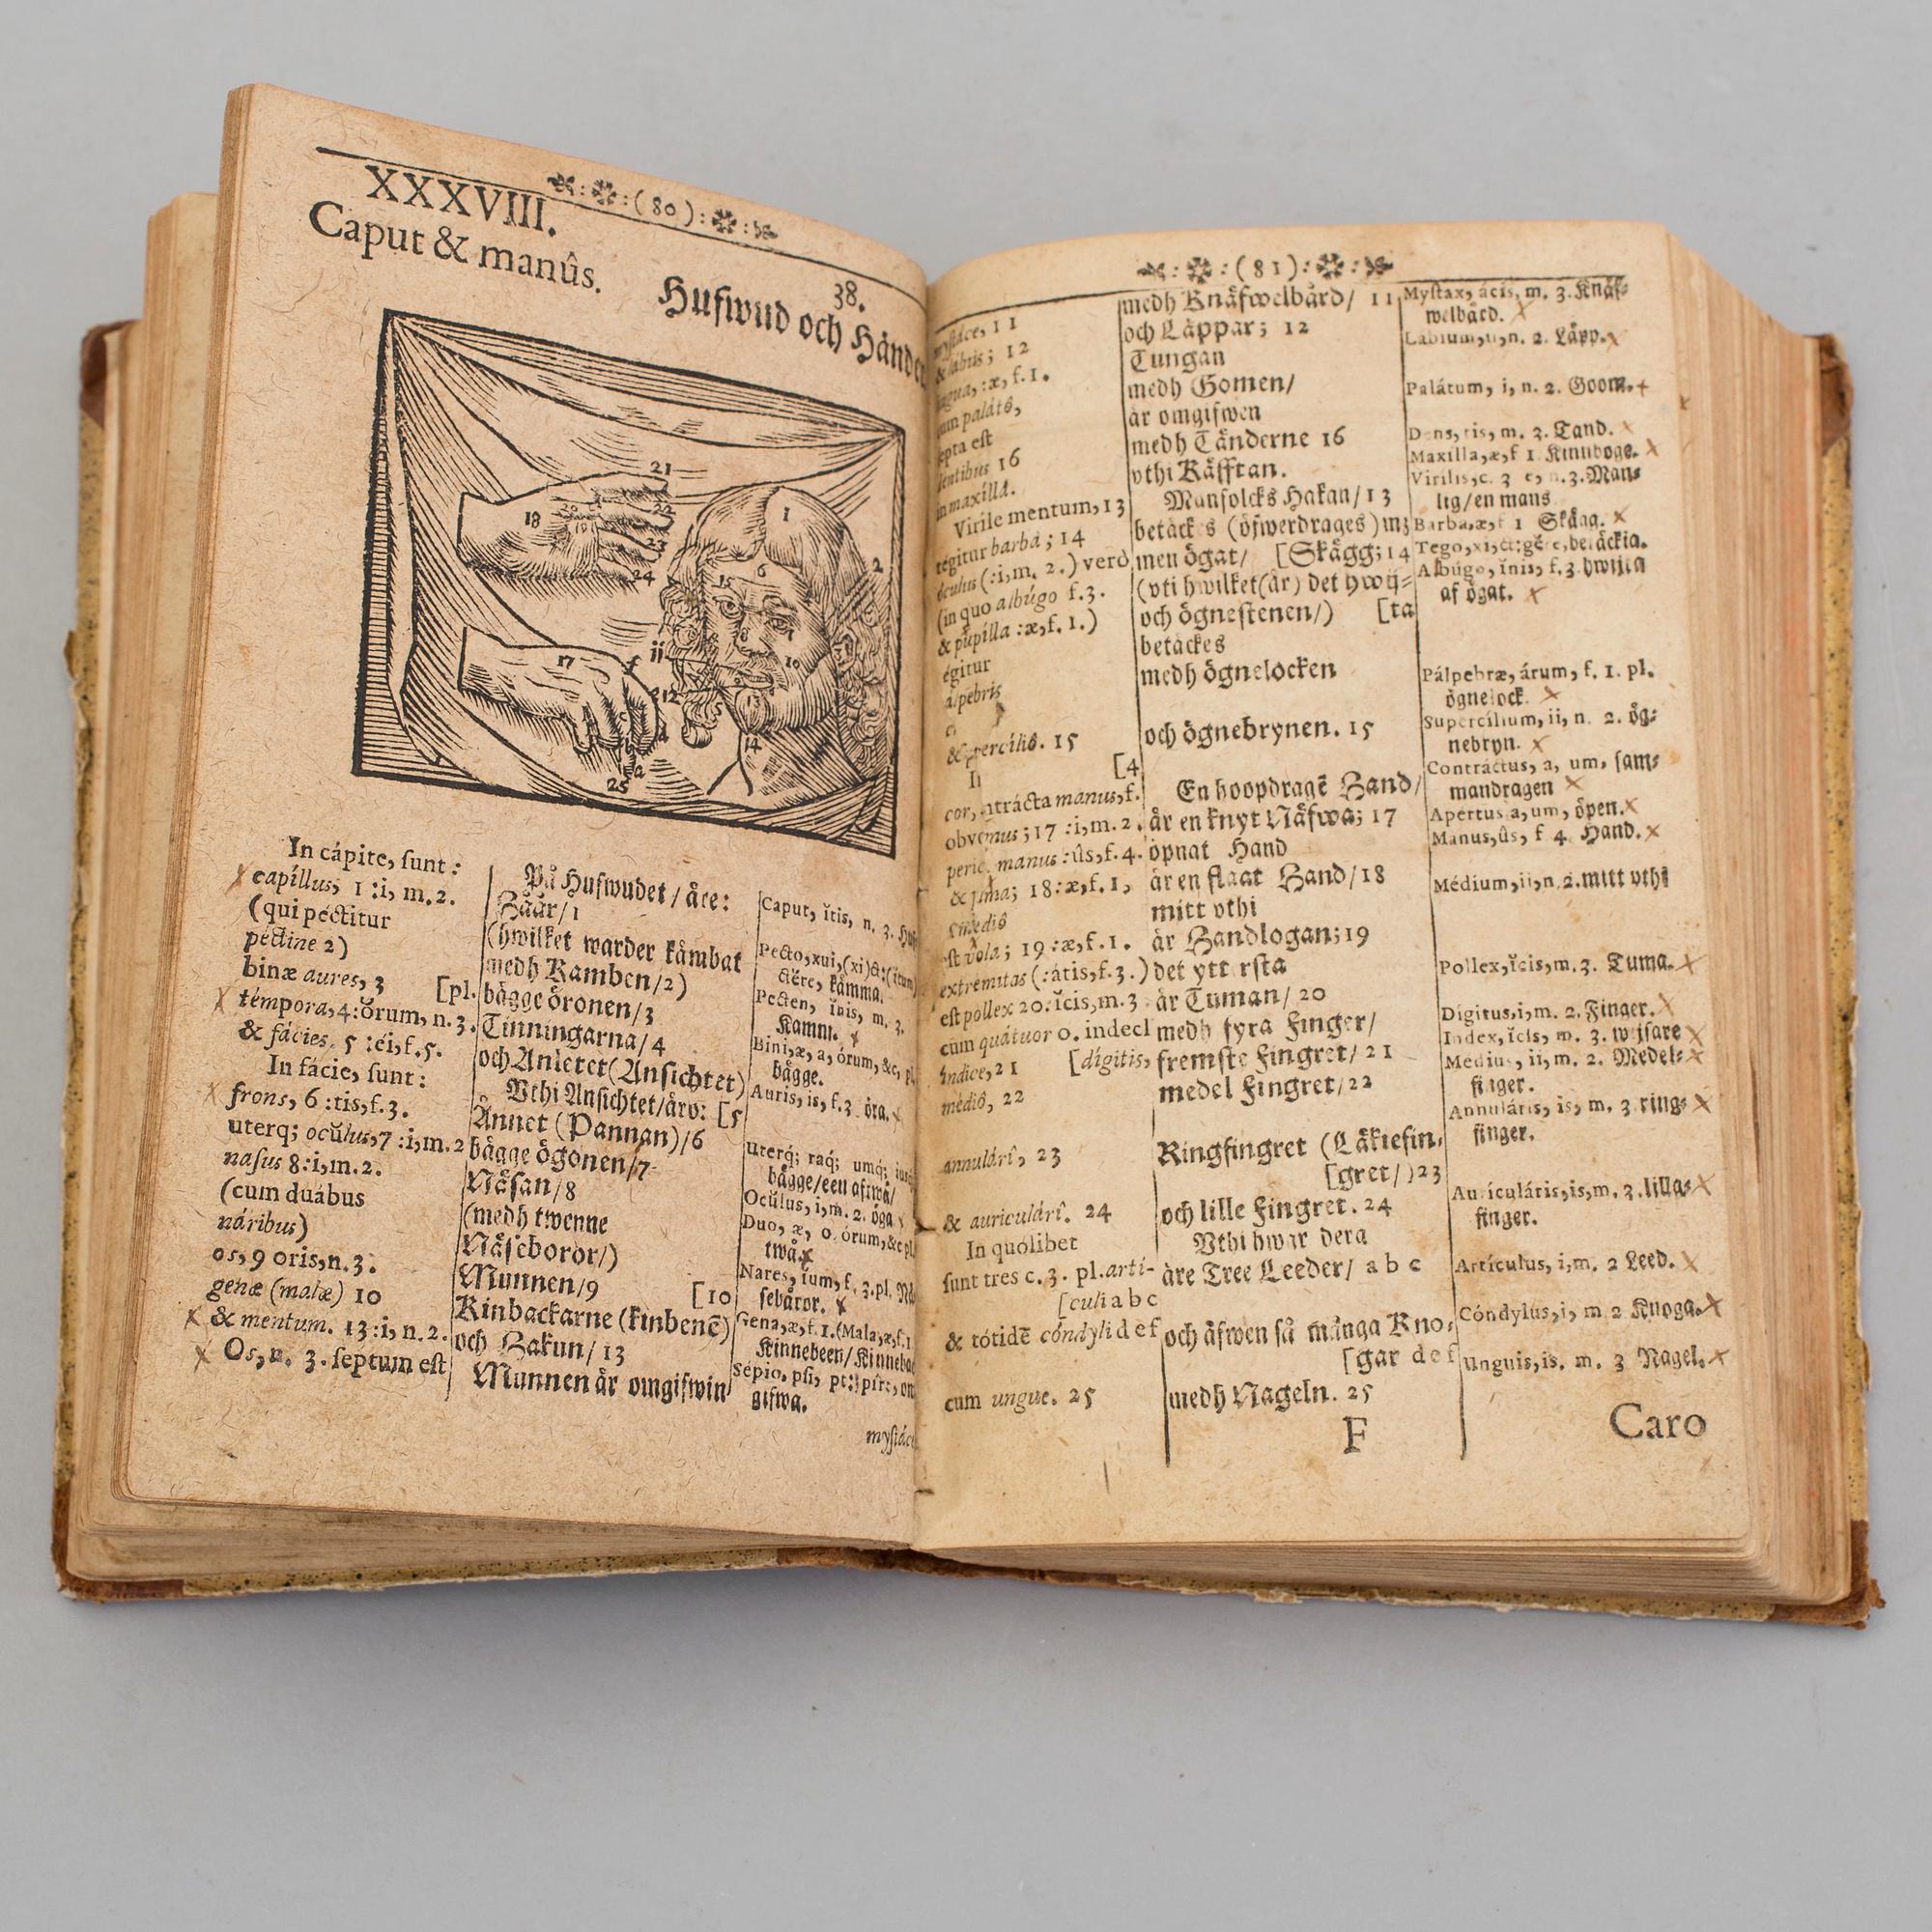 (80)
XXXVIII.
Caput & manûs.
38.
Hufwud och Händer
21
18
20
19
22
23
24
1
2
6
15
8
7
10
11
17
12
13
14
f
e
d
c
b
a
25
In cápite, sunt:
capíllus, 1 :i, m. 2.
(qui péctitur
péctine 2)
binæ aures, 3 [pl.
témpora, 4:ŏrum, n. 3.
& fácies. 5 :éi, f. 5.
In fácie, sunt:
frons, 6 :tis, f. 3.
uterq; ocŭlus, 7 :i, m. 2
nasus 8:i, m. 2.
(cum duábus
náribus)
os, 9 oris, n. 3.
genæ (malæ) 10
& mentum. 13 :i, n. 2.
Os, n. 3. septum est
På Hufwudet / äre:
Håår / 1
(hwilket warder kåmbat
medh Kamben / 2)
bägge öronen / 3
Tinningarna / 4
och Anletet (Ansichtet)
Vthi Ansichtet / äro: [5
Ännet (Pannan) / 6
bägge ögonen / 7
Näsan / 8
(medh twenne
Näseboror /)
Munnen / 9 [10
Kinbackarne (kinbenē)
och Hakan / 13
Munnen är omgifwin
Caput, ĭtis, n. 3.
Pecto, xui, (xi)
ctĕre, kämma.
Pecten, ĭnis, m. 3.
Kamm.
Bini, æ, a, órum, &c, pl.
bägge.
Auris, is, f. 3. öra.
uterq; raq; umq;
bägge / een af twå /
Ocŭlus, i, m. 2. öga
Duo, æ, o. órum, &c pl
twå
Nares, ium, f. 3. pl.
seboror.
Gena, æ, f. 1. (Mala, æ, f. 1
Kinnebeen / Kinnebac
Sepio, psi, pt: pire, om
gifwa.
mystáce
(81)
mystáce, 11
& lábiis; 12
lingua, :æ, f. 1.
cum paláto,
septa est
dentibus 16
in maxíllâ.
Virile mentum, 13
tégitur barbâ; 14
óculus (:i, m. 2.) verò
(in quo albúgo f. 3.
& pŭpilla :æ, f. 1.)
tégitur
pálpebris
& supercíliô. 15
[4
contrácta manus, f.
pugnus; 17 :i, m. 2.
manus :ûs, f. 4.
palma; 18:æ, f. 1,
in médiô
est vola; 19 :æ, f. 1.
extrémitas (:átis, f. 3.)
est pollex 20. ĭcis, m. 3
cùm quátuor o. indecl
índice, 21 [dígitis,
médiô, 22
annulárî, 23
& auriculárî. 24
In quólibet
sunt tres c. 3. pl. artí-
[culi a b c
& tótidē cóndyli d e f
cum ungue. 25
medh Knäfwelbård / 11
och Läppar; 12
Tungan
medh Gomen /
är omgifwen
medh Tänderne 16
vthi Käfftan.
Mansfolcks Hakan / 13
betäckes (öfwerdrages) m;
men ögat / [Skägg; 14
(vti hwilket (är) det hwij=
och ögnestenen /) [ta
betäckes
medh ögnelocken
och ögnebrynen. 15
En hoopdragē Hand /
är en knyt Näfwa; 17
öpnat Hand
är en flaat Hand / 18
mitt vthi
är Handlogan; 19
det ytt rsta
är Tuman / 20
medh fyra Finger /
fremste Fingret / 21
medel Fingret / 22
Ringfingret (Läkiefin,
[gret /) 23
och lille Fingret. 24
Vthi hwar dera
äre Tree Leeder / a b c
och äfwen så många Kno,
[gar d e f
medh Nageln. 25
F
Mystax, ácis, m. 3. Knäf=
welbård.
Labium, ii, n. 2. Läpp.
Palátum, i, n. 2. Goom.
Dens, tis, m. 3. Tand.
Maxilla, æ, f 1. Kinnboge.
Virilis, c. 3 e, n. 3. Man=
lig / en mans
Barba, æ, f 1 Skägg.
Tego, xi, ct: gĕre, betäckia.
Albúgo, ĭnis, f. 3. hwijta
af ögat.
Pálpebræ, árum, f. 1. pl.
ögnelock.
Supercílium, ii, n. 2. ög=
nebryn.
Contráctus, a, um, sam=
mandragen
Apertus, a, um, öpen.
Manus, ûs, f 4. Hand.
Médium, ii, n. 2. mitt vthi
Pollex, ĭcis, m. 3. Tuma.
Dígitus, i, m. 2. Finger.
Index, ĭcis, m. 3. wijsare
Medius, ii, m. 2. Medel=
finger.
Annuláris, is, m. 3 ring=
finger.
Auriculáris, is, m. 3. lilla=
finger.
Artículus, i, m. 2 Leed.
Cóndylus, i, m 2 Knoga.
Unguis, is. m. 3 Nagel.
Caro